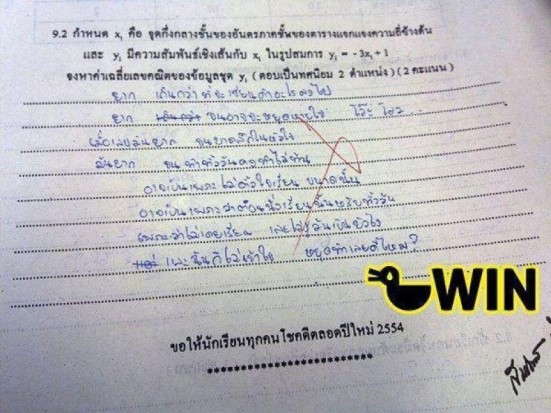 9.2 กำหนด xᵢ คือ จุดกึ่งกลางชั้นของอันตรภาคชั้นของตารางแจกแจงความถี่ข้างต้น
และ yᵢ มีความสัมพันธ์เชิงเส้นกับ xᵢ ในรูปสมการ yᵢ = -3xᵢ+1
จงหาค่าเฉลี่ยเลขคณิตของข้อมูลชุด yᵢ (ตอบเป็นทศนิยม 2 ตำแหน่ง) (2 คะแนน)
ยาก เกินกว่าที่จะเขียนคำอะไรลงไป
ยาก จนอาจจะหยุดหายใจ
มันยาก จนทำทั้งวันคงทำไม่ทัน
อาจเป็นเพราะไม่ตั้งใจเรียน ขนาดนั้น
อาจเป็นเพราะว่าตอนนั่งเรียนนั้นหลับทั้งวัน
เพราะว่าไม่เคยเรียน เลยไม่รู้มันเป็นยังไง
และฉันก็ไม่เข้าใจ หยุดทำเลยดีไหม?
WIN
ขอให้นักเรียนทุกคนโชคดีตลอดปีใหม่ 2554